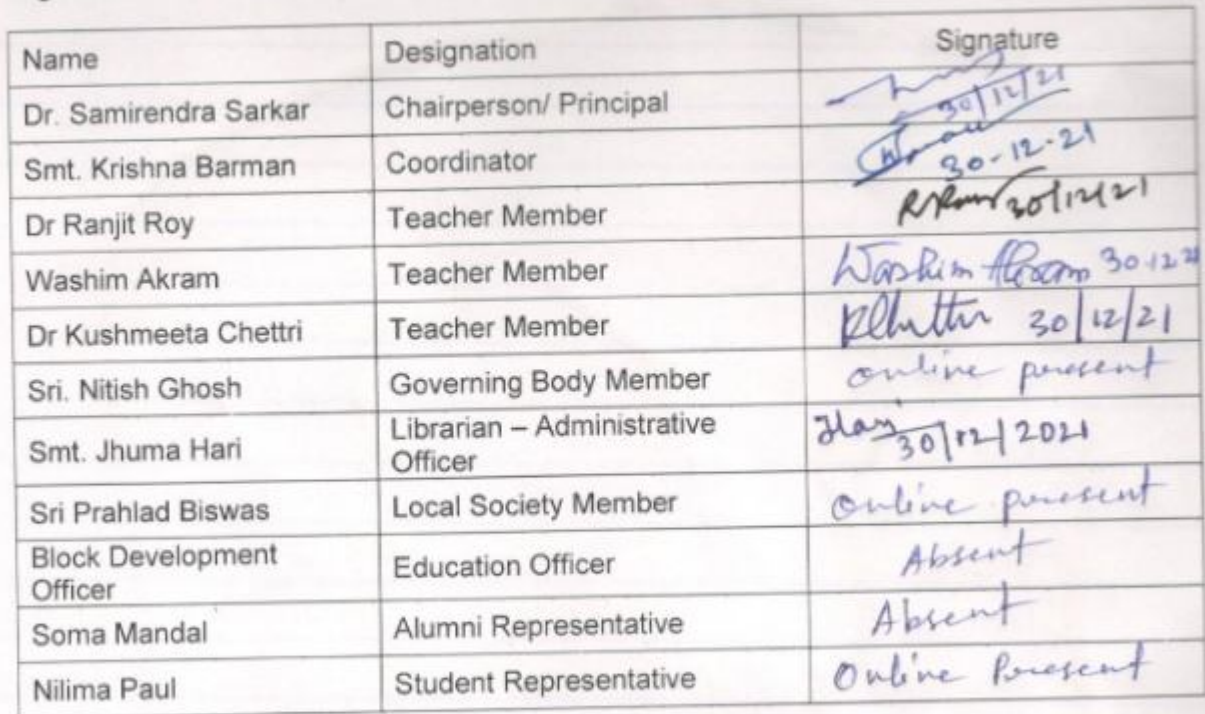 Name Designation Signature
Dr. Samirendra Sarkar Chairperson/ Principal 30/12/21
Smt. Krishna Barman Coordinator 30-12-21
Dr Ranjit Roy Teacher Member 30/12/21
Washim Akram Teacher Member Washim Akram 30.12.21
Dr Kushmeeta Chettri Teacher Member 30/12/21
Sri. Nitish Ghosh Governing Body Member online present
Smt. Jhuma Hari Librarian – Administrative
Officer 30/12/2021
Sri Prahlad Biswas Local Society Member Online present
Block Development
Officer Education Officer Absent
Soma Mandal Alumni Representative Absent
Nilima Paul Student Representative Online Present